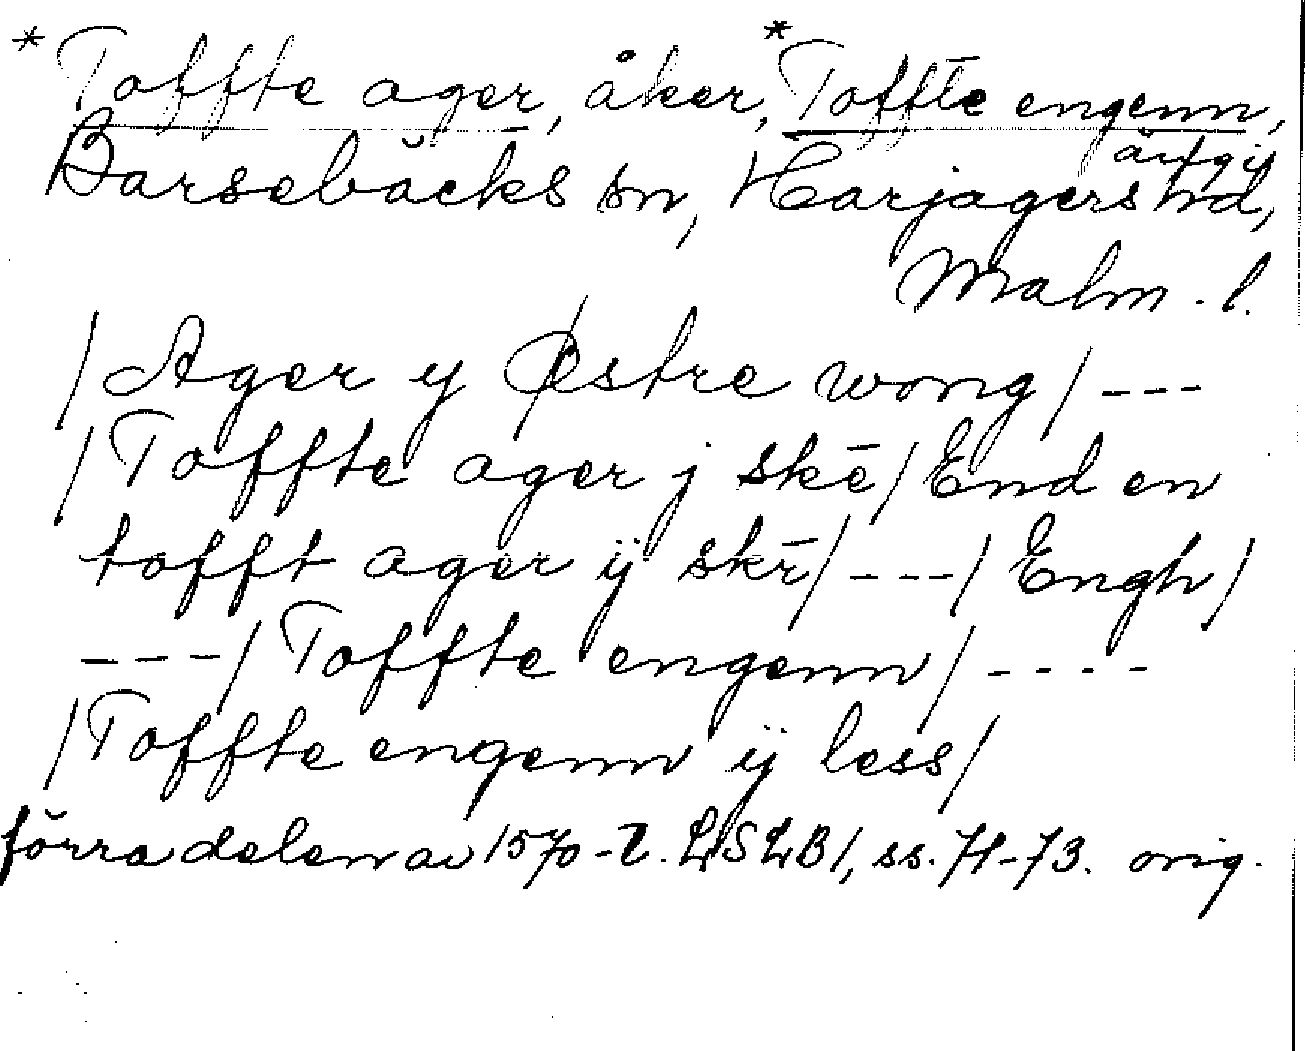 *Toffte ager, åker, *Toffte engenn,
ärfgij
Barsebäcks sn, Harjagers hd,
Malm. l.
/Ager y Østre wong/ ---
/Toffte ager j skē/End en
tofft ager ÿ skē/---/Engh/
---/Toffte engenn/----
/Toffte engenn ÿ less/
förra delen av 1570-t. LSLB1, ss. 71-73. orig.